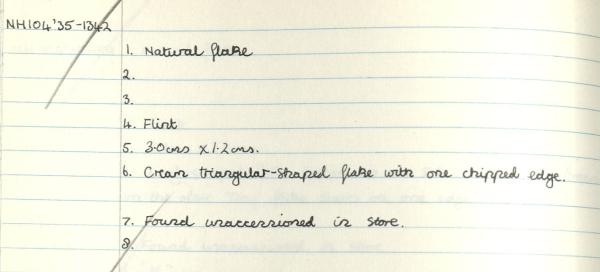 NH104'35-1342
1. Natural flake
2.
3.
4. Flint
5. 3.0cms x 1.2cms.
6. Cream triangular-shaped flake with one chipped edge.
7. Found unaccessioned in store.
8.